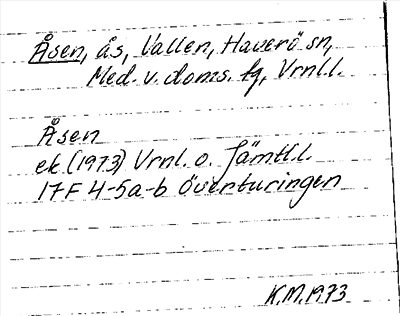 Åsen, ås, Vallen, Haverö sn,
Med. v. doms. tg, Vrnl.l.
Åsen
ek (1973) Vrnl. o. Jämtl.l.
17F 4-5a-b Överturingen
K.M. 1973